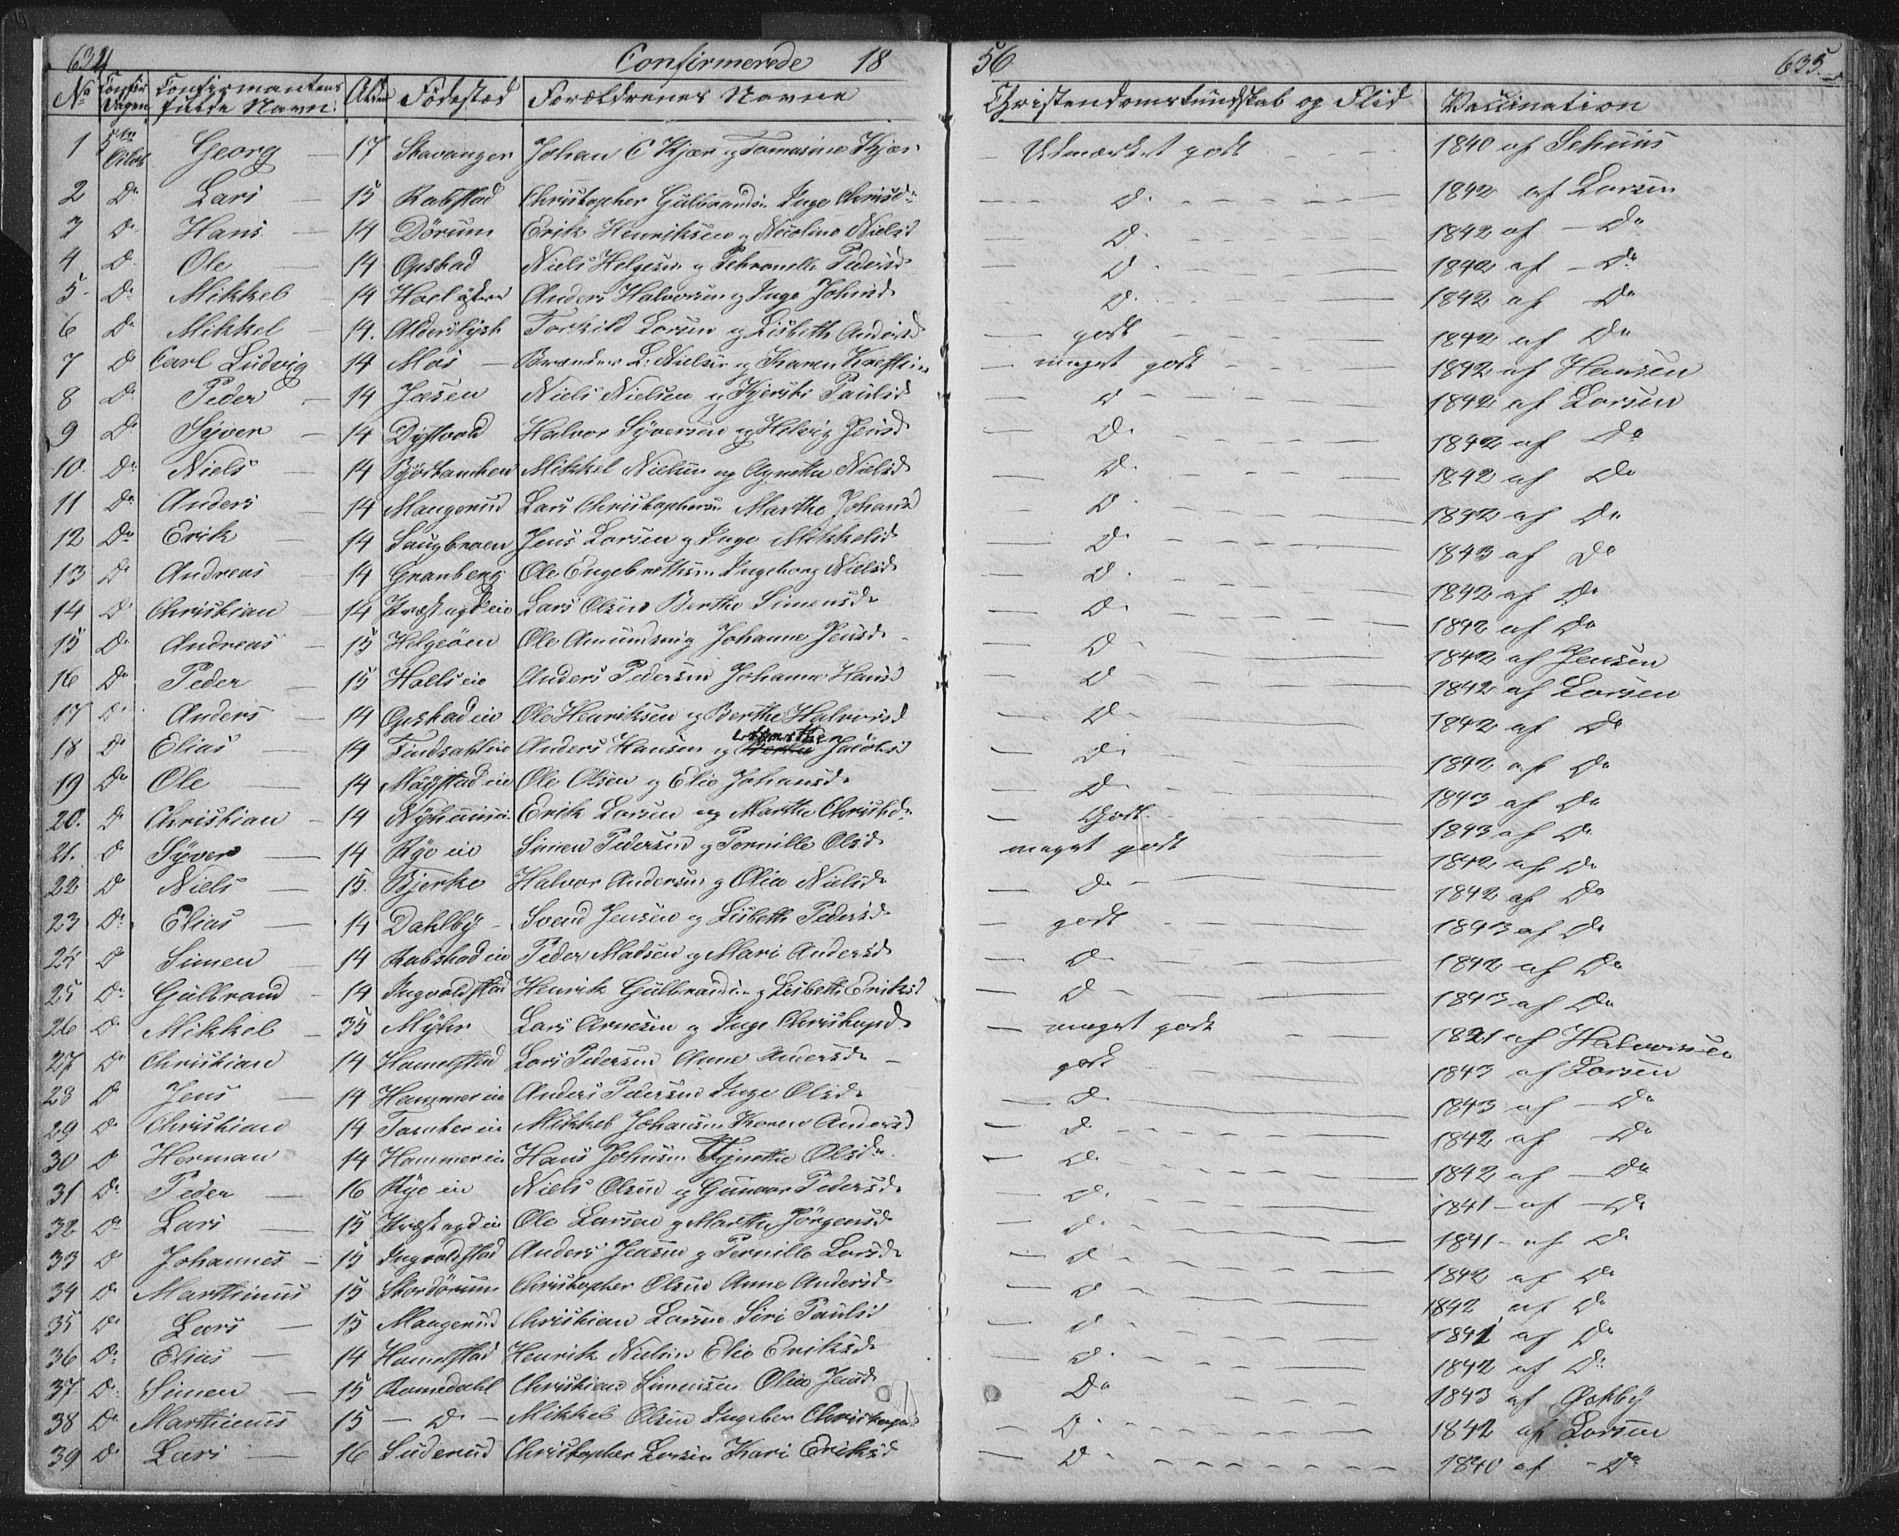 634. Confirmerede 18 56 635.
No Confir Dagen Confirmantens fulde Navn. Alder Födested Forældrenes Navne Christendomskundskab og Flid Vaccination
1 5te Octob Georg 17 Stavanger Johan C Kjær og Tomasine Kjær Udmærket godt 1840 af
2 Do Lars 15 Rabstad Christopher Gulbrands. Inge Chrisd. Do 1842 af Larsen
3 Do Hans 14 Dørum Erik Henriksen og Nicoline Nielsd Do 1842 af Do
4 Do Ole 14 Opstad Niels Helgesen og Pehronelle Pedersd Do 1842 af Do
5 Do Mikkel 14 Hoel Anders Halvorsen og Inge Johnsd. Do 1842 af Do
6 Do Mikkel 14. Alderslyst Torkild Larsen og Lisbeth Andersd godt 1842 af Do
7 Do Carl Ludvig 14 Mos L. Nielsen og Karen meget godt 1842 af Hansen
8 Do Peder 14 Jæsen Niels Nielsen og Kjersti Paulsd Do 1842 af Larsen
9 Do Syver 14 Dystvold Halvor Syversen og Helvig Jensd Do 1842 af Do
10. Do Niels 14 Mikkel Nielsen og Agnethe Nielsd. Do 1842 af Do
11 Do Anders 14 Mangerud Lars Christophersen Marthe Johansd Do 1842 af Do
12 Do Erik 14 Saugbraaten Jens Larsen og Inge Mikkelsd. Do 1843 af Do
13 Do Andreas 14 Granberg Ole Engebrethsen Ingeborg Nielsd Do 1842 af Do
14 Do Christian 14 Præstegd eie Lars Olsen Berthe Simensd. Do 1842 af Do
15 Do Andreas 15 Helgeøen Ole Amundsen og Johanne Jensd. Do 1842 af Jensen
16 Do Peder 15 Hoels eie Anders Pedersen Johanne Hansd Do 1842 af Larsen
17 Do Anders 14 Opstad eie Ole Henriksen og Berthe Halvorsd Do 1842 af Do
18 Do Elias 14 Findsahl eie Anders Hansen og Marthe Jacobsd Do 1842 af Do
19 Do Ole 14 Møystad eie Ole Olsen og Elie Johansd. Do 1843 af Do
20. Do Christian 14 Nyhuus Erik Larsen og Marthe Christsd. Godt 1843 af Do
21. Do Syver 14 Rye eie Simen Pedersen og Pernille Olsd meget godt 1842 af Do
22 Do Niels 15. Bjerke Halvor Andersen og Olia Nielsd. Do 1842 af Do
23 Do Elias 14 Dahlby Svend Jensen og Lisbeth Pedersd. godt 1843 af Do
24 Do Simen 14 Rabstad eie Peder Madsen og Mari Andersd Do 1842 af Do
25 Do Gulbrand 14 Ingvoldstad Henrik Gulbrandsen og Lisbeth Eriksd Do 1843 af Do
26 Do Mikkel 35 Myhr Lars Arnesen og Inge Christophd. meget godt 1821 af Halvorsen
27 Do Christian 14 Hamelstad Lars Pedersen Anne Andersd. godt 1843 af Larsen
28 Do Jens 14 Hammer eie Anders Pedersen Inge Olsd. Do 1843 af Do
29 Do Christian 14 Tomter eie Mikkel Johansen Karen Andersd Do 1842 af Do
30 Do Herman 14 Hammer eie Hans Johnsen Agnethe Olsd. Do 1842 af Do
31 Do Peder 16 Rye eie Niels Olsen og Gunvor Pedersd. Do 1841 af Do
32 Do Lars 15 Præstegd eie Ole Larsen og Marthe Jørgensd Do 1841 af Do
33 Do Johannes 15 Ingvoldstad Anders Jensen og Pernille Larsd. Do 1842 af Do
34 Do Marthinus 15 Stordørum Christopher Olsen Anne Andersd Do 1842 af Do
35 Do Lars 15 Mangerud Christian Larsen Siri Paulsd Do 1841 af Do
36 Do Elias 14 Hamelstad Henrik Nielsen Elie Eriksd. Do 1842 af Do
37 Do Simen 15 Romedahl Christian Simensen Olia Jensd Do 1843 af Østby
38 Do Marthinus 15 Do Mikkel Olsen Ingeber Christophersd Do 1842 af Larsen
39 Do Lars 16 Suderud Christopher Larsen Kari Eriksd Do 1840 af Do